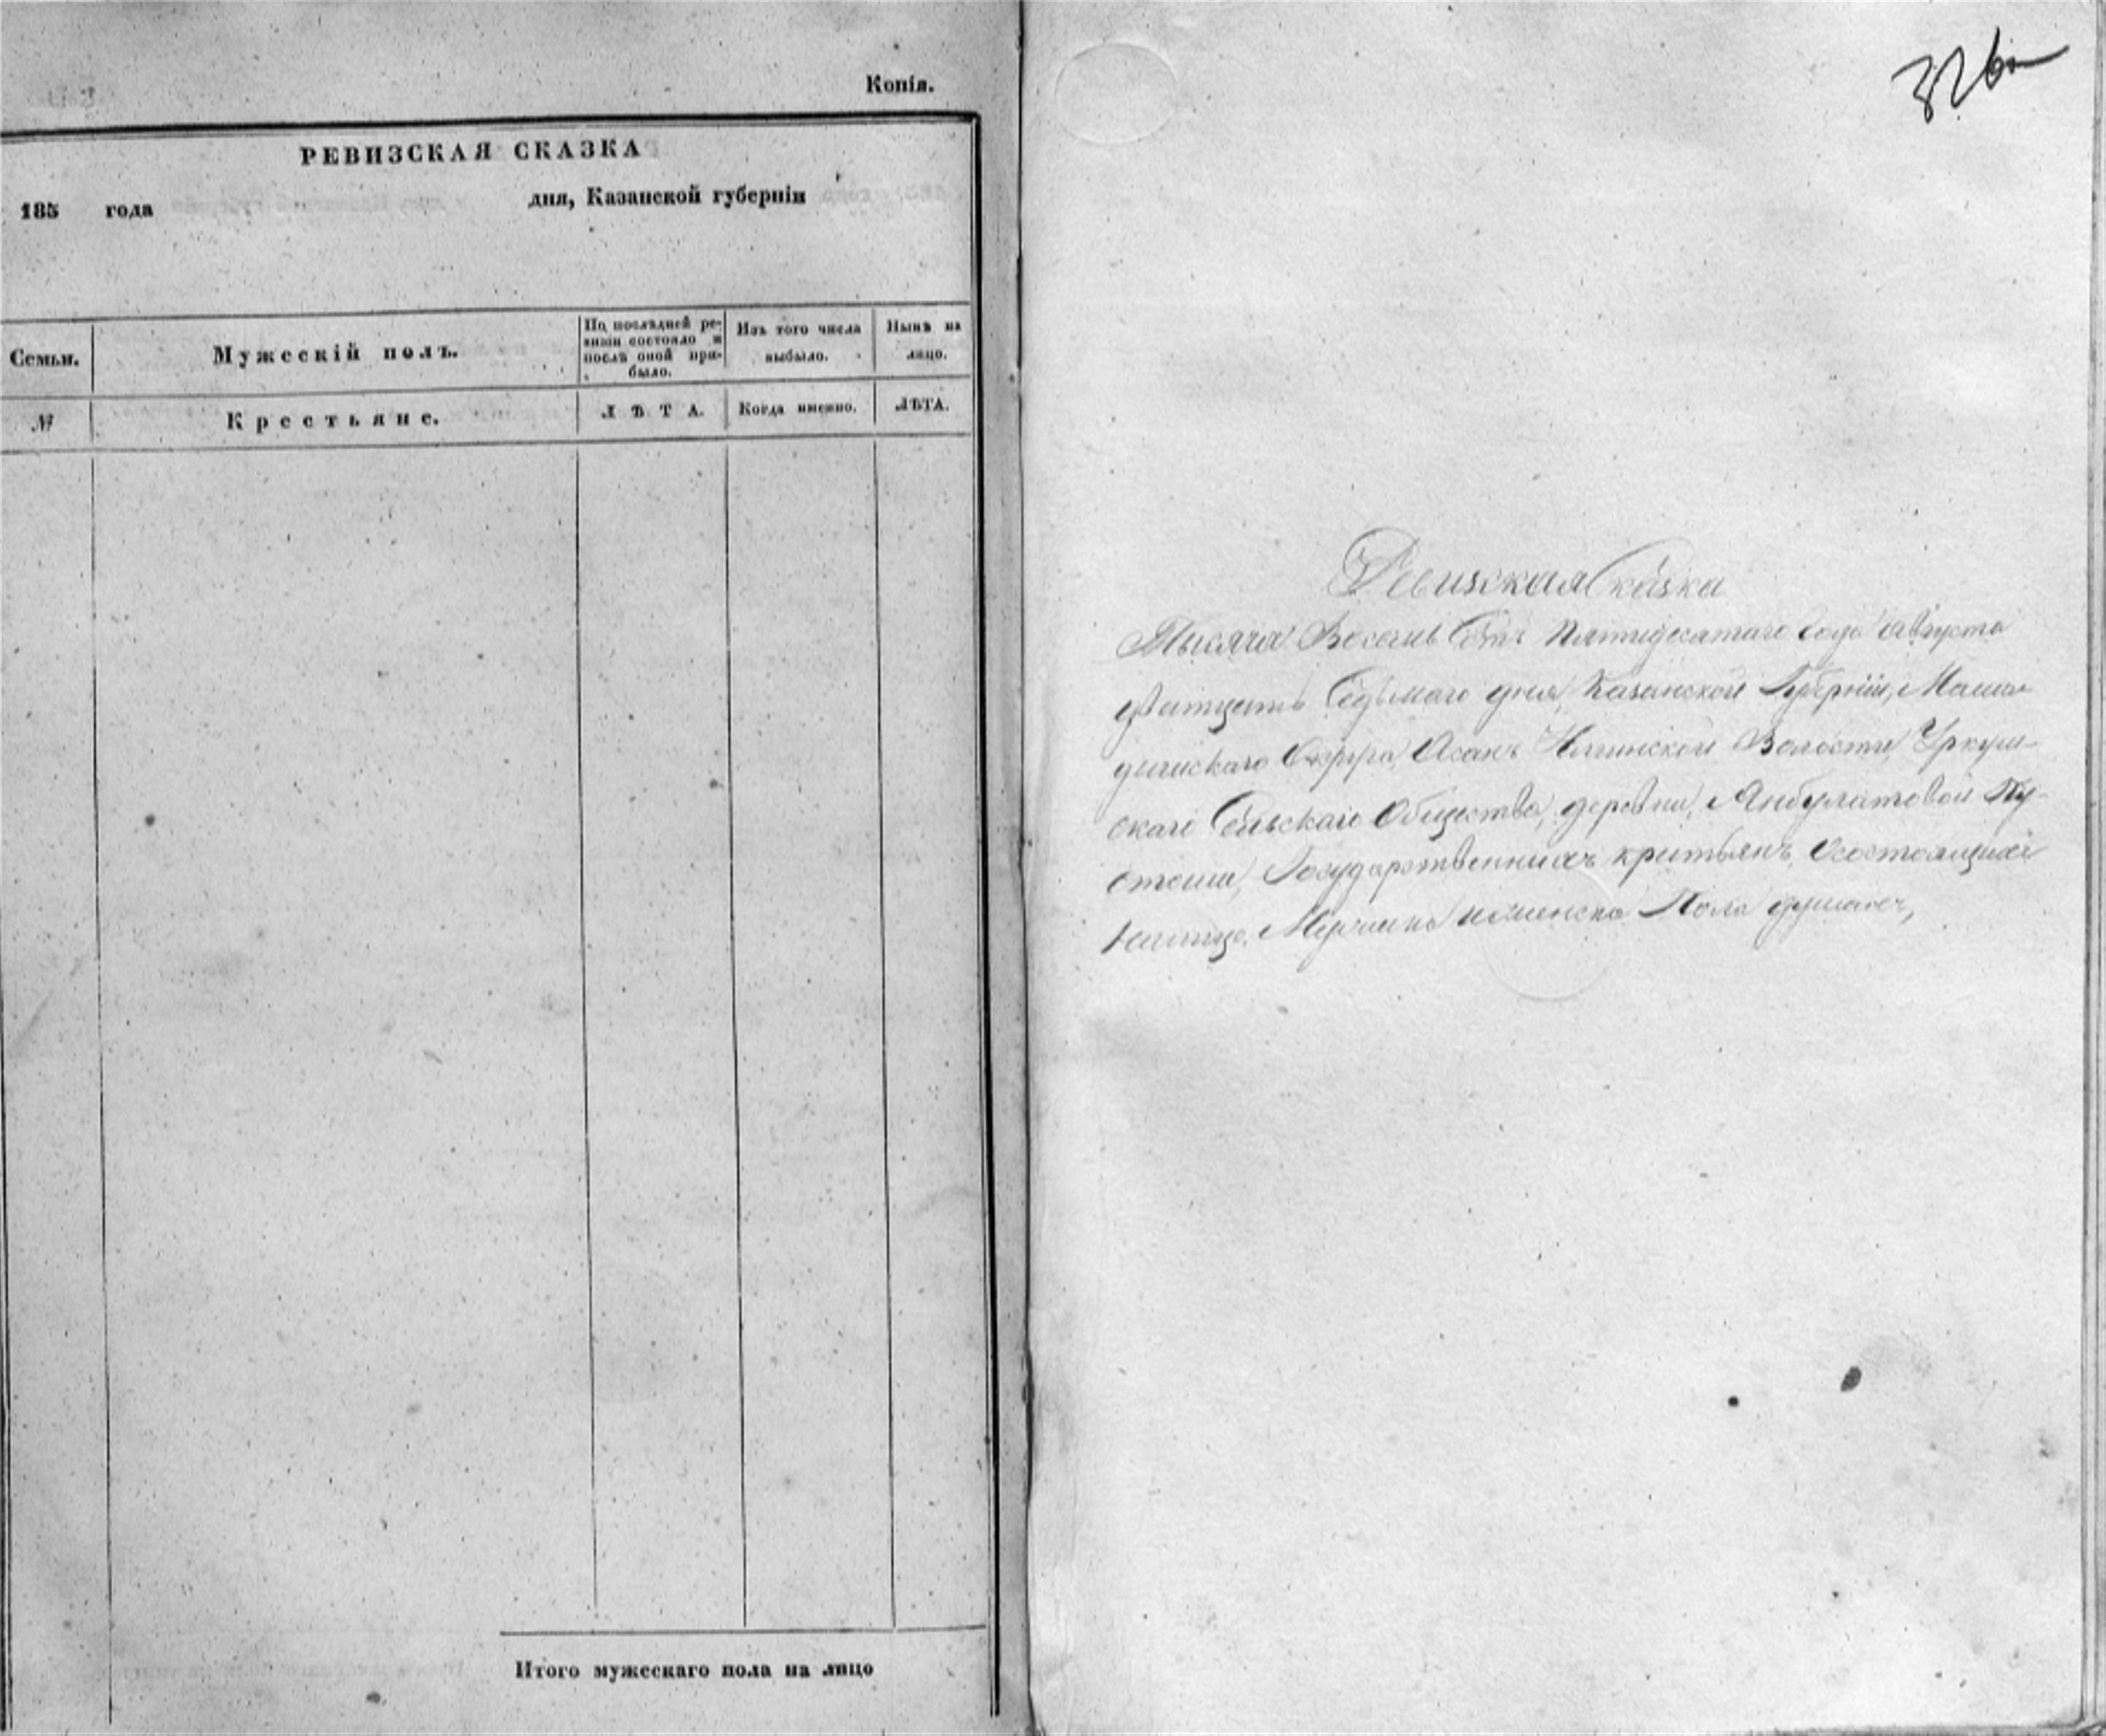 Копія.
РЕВИЗСКАЯ СКАЗКА
185 года дня, Казанской губерніи
Семьи.
Мужескій полъ.
По послѣдней ре-
визіи состояло и
послѣ оной при-
было.
Изъ того числа
выбыло.
Нынѣ на
лицо.
№
Крестьяне.
ЛѢТА.
Когда именно.
ЛѢТА.
Итого мужескаго пола на лицо
326
Ревизская Сказка
Тысяча Восемь Сотъ Пятидесятаго Года Августа
Седьмаго дня, Казанской Губерніи, Мама-
дышскаго Округа, Асанъ Волости,
скаго Сельскаго Общества, деревни, Янбулатовой Пу-
стоши, Государственныхъ
Мужеска иженска Пола душахъ,